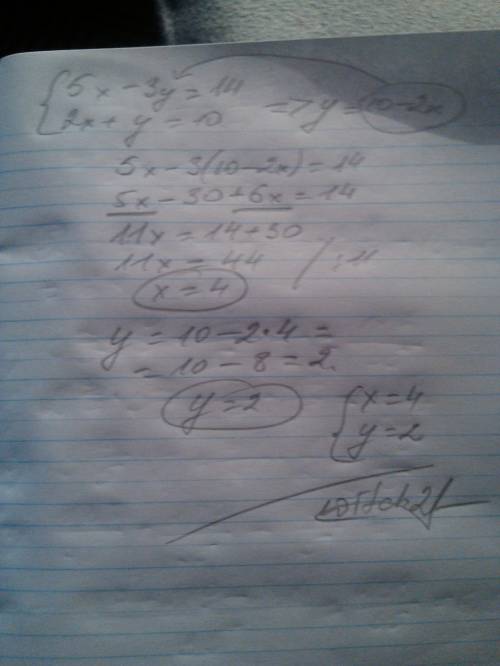 5x - 3y = 14
2x + y = 10 => y = 10 - 2x
5x - 3(10 - 2x) = 14
5x - 30 + 6x = 14
11x = 14 + 30
11x = 44 / : 11
x = 4
y = 10 - 2 • 4 =
= 10 - 8 = 2.
y = 2
x = 4
y = 2